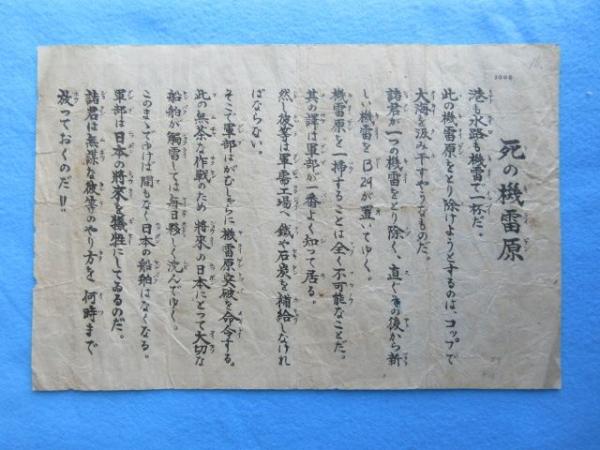 死の機雷原
港も水路も機雷で一杯だ。
此の機雷原をとり除けようとするのは、コップで
大海を汲み干すやうなものだ。
諸君が一つの機雷をとり除く、直ぐその後から新
しい機雷をB24が置いてゆく。
機雷原を一掃することは全く不可能なことだ。
其の譯は軍部が一番よく知って居る。
然し彼等は軍需工場へ鐵や石炭を補給しなけれ
ばならない。
そこで軍部はがむしゃらに機雷原突破を命令する。
此の無茶な作戰のため將來の日本にとって大切な
船舶が觸雷しては毎日夥しく沈んでゆく。
このまゝでゆけば間もなく日本の船舶はなくなる。
軍部は日本の將來を犠牲にしてゐるのだ。
諸君は無謀な彼等のやり方を何時まで
放っておくのだ!!